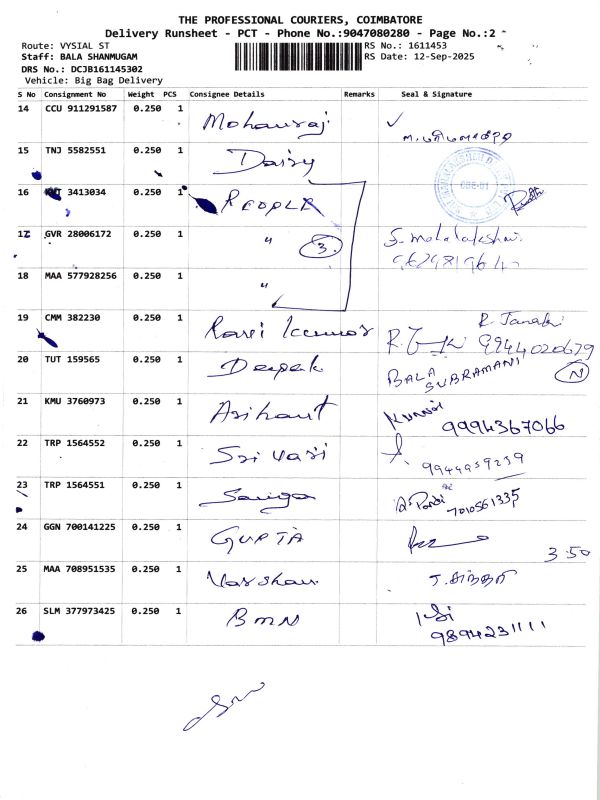 THE PROFESSIONAL COURIERS, COIMBATORE
Delivery Runsheet - PCT - Phone No.:9047080280 - Page No.:2
Route: VYSIAL ST
RS No.: 1611453
Staff: BALA SHANMUGAM
RS Date: 12-Sep-2025
DRS No.: DCJB161145302
Vehicle: Big Bag Delivery
S No Consignment No Weight PCS Consignee Details Remarks Seal & Signature
14 CCU 911291587 0.250 1 Mohanraj
15 TNJ 5582551 0.250 1 Daisy
16 3413034 0.250 1 PEOPLE
17 GVR 28006172 0.250 1 " 3
18 MAA 577928256 0.250 1 "
19 CMM 382230 0.250 1 Ravi Kumar R. Janaki
9944020679
20 TUT 159565 0.250 1 Deepak BALA
SUBRAMANI N
21 KMU 3760973 0.250 1 Arihant
9994367066
22 TRP 1564552 0.250 1 Sri Vari
9944959239
23 TRP 1564551 0.250 1
7010561335
24 GGN 700141225 0.250 1 GUPTA
3.50
25 MAA 708951535 0.250 1 Varshan
26 SLM 377973425 0.250 1 BMN
9894231111